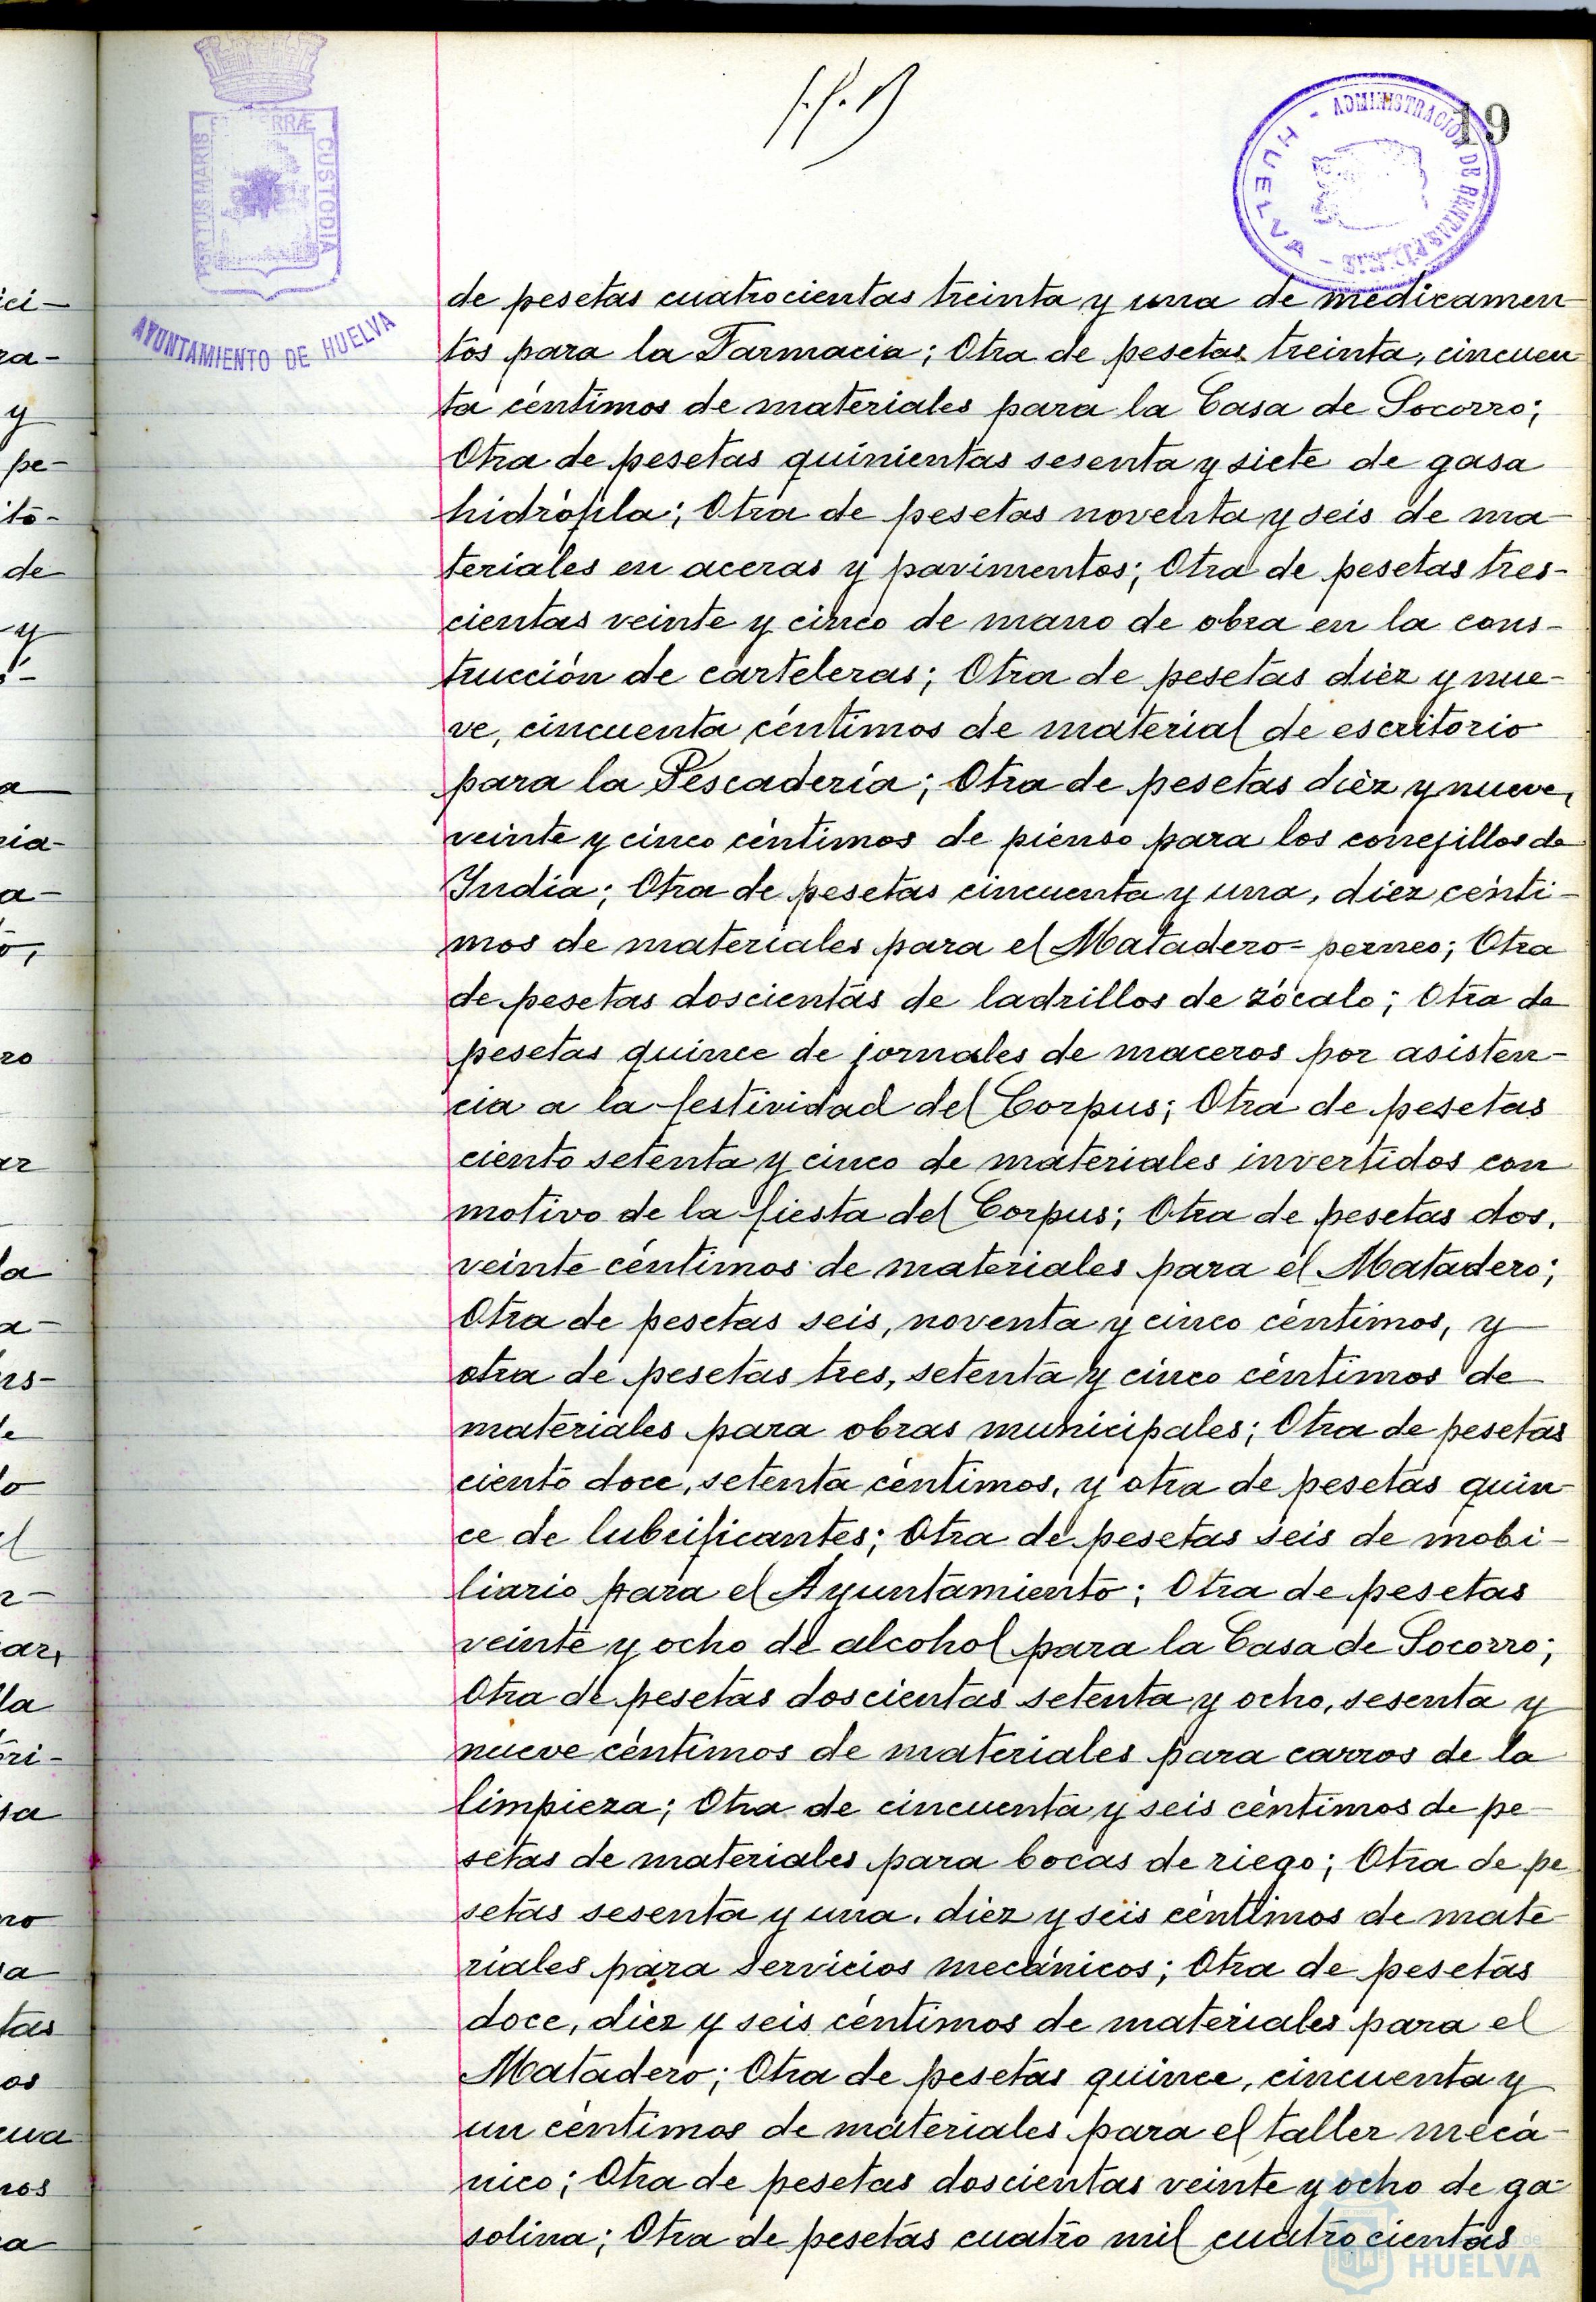 19
ADMINISTRACIÓN DE RENTAS
HUELVA
PORTUS MARIS
TERRÆ CUSTODIA
AYUNTAMIENTO DE HUELVA
de pesetas cuatrocientas treinta y una de medicamen
tos para la Farmacia; Otra de pesetas treinta, cincuen
ta céntimos de materiales para la Casa de Socorro;
Otra de pesetas quinientas sesenta y siete de gasa
hidrófila; Otra de pesetas noventa y seis de ma
teriales en aceras y pavimentos; Otra de pesetas tres-
cientas veinte y cinco de mano de obra en la cons-
trucción de carteleras; Otra de pesetas diez y nue-
ve, cincuenta céntimos de material de escritorio
para la Pescadería; Otra de pesetas diez y nueve,
veinte y cinco céntimos de pienso para los conejillos de
India; Otra de pesetas cincuenta y una, diez cénti-
mos de materiales para el Matadero-perneo; Otra
de pesetas doscientas de ladrillos de zócalo; Otra de
pesetas quince de jornales de maceros por asisten-
cia a la festividad del Corpus; Otra de pesetas
ciento setenta y cinco de materiales invertidos con
motivo de la fiesta del Corpus; Otra de pesetas dos,
veinte céntimos de materiales para el Matadero;
Otra de pesetas seis, noventa y cinco céntimos, y
otra de pesetas tres, setenta y cinco céntimos de
materiales para obras municipales; Otra de pesetas
ciento doce, setenta céntimos, y otra de pesetas quin
ce de lubrificantes; Otra de pesetas seis de mobi-
liario para el Ayuntamiento; Otra de pesetas
veinte y ocho de alcohol para la Casa de Socorro;
Otra de pesetas doscientas setenta y ocho, sesenta y
nueve céntimos de materiales para carros de la
limpieza; Otra de cincuenta y seis céntimos de pe-
setas de materiales para bocas de riego; Otra de pe
setas sesenta y una, diez y seis céntimos de mate
riales para servicios mecánicos; Otra de pesetas
doce, diez y seis céntimos de materiales para el
Matadero; Otra de pesetas quince, cincuenta y
un céntimos de materiales para el taller mecá-
nico; Otra de pesetas doscientas veinte y ocho de ga-
solina; Otra de pesetas cuatro mil cuatrocientas
HUELVA